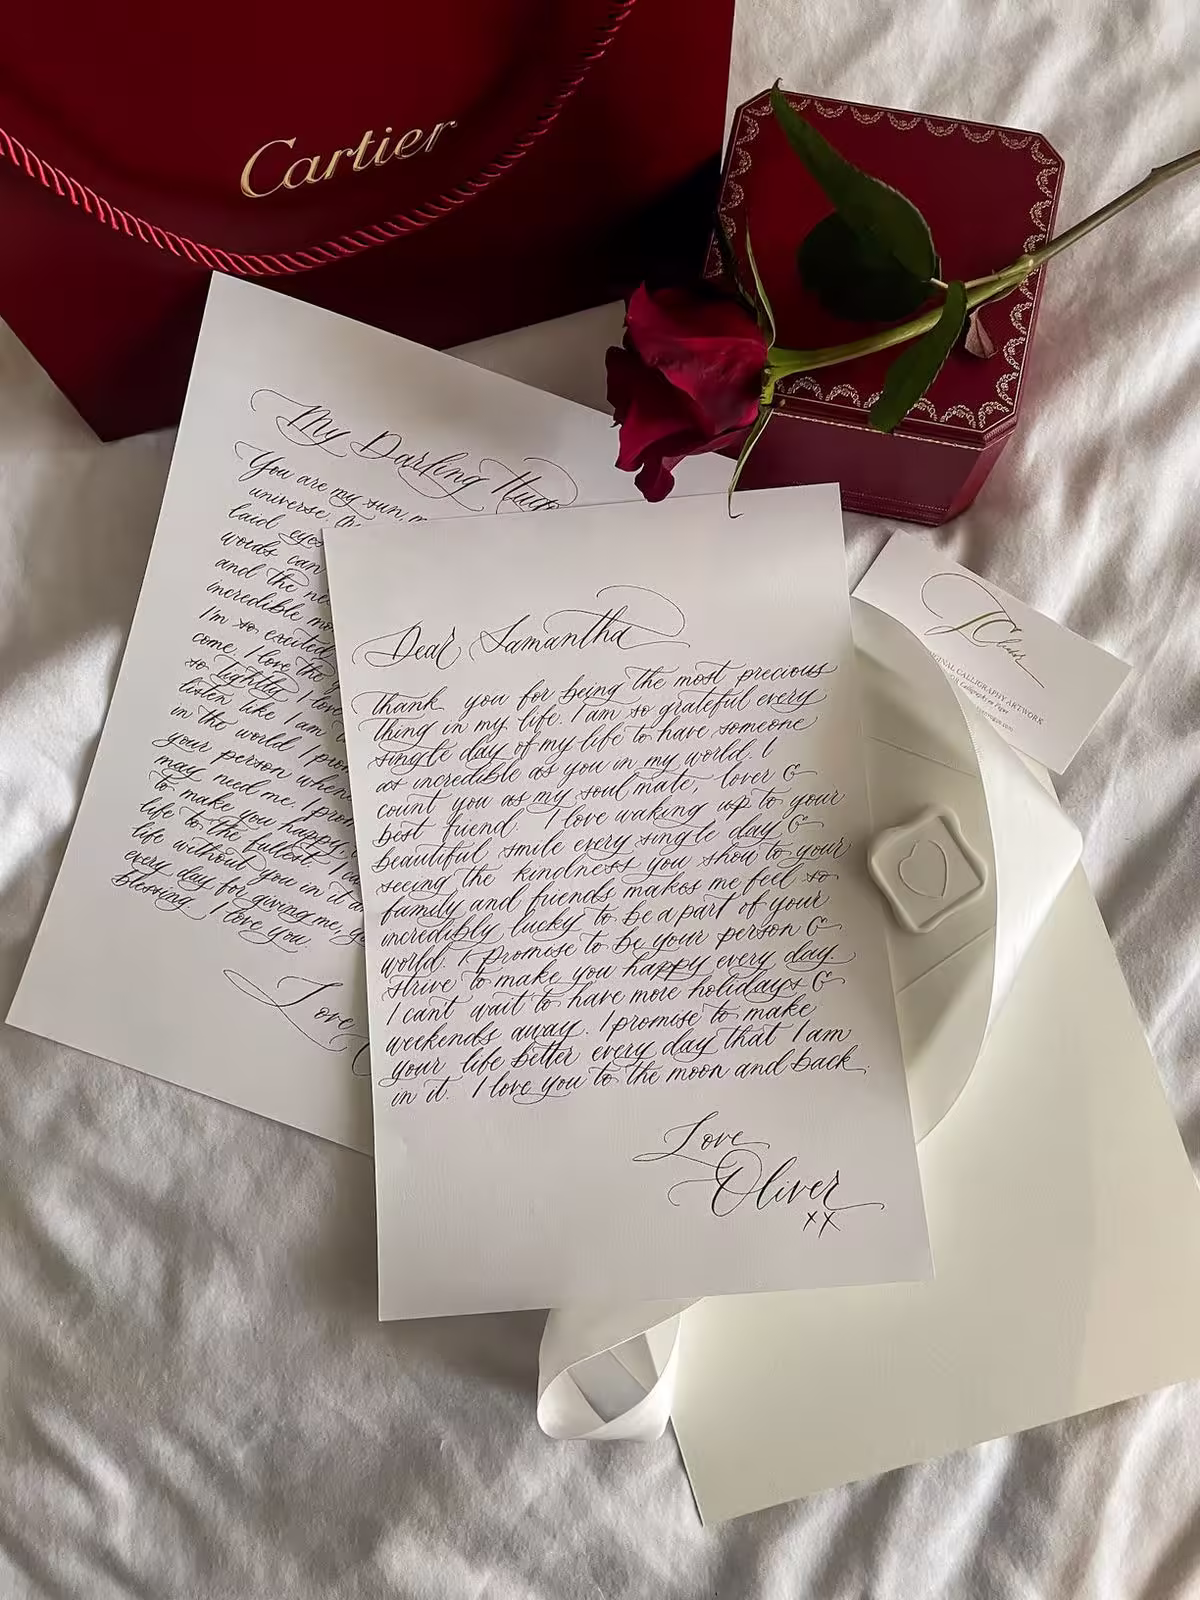 Cartier
My Darling
You are my sun,
universe.
laid eyes
words can
and the
incredible
I'm so excited
come. I love the
so tightly. I love
listen like I am
in the world I
your person when
may need me. I
to make you happy,
life to the fullest. I
life without you in it
every day for giving me,
blessing. I love you.
Love
Dear Samantha
Thank you for being the most precious
thing in my life. I am so grateful every
single day of my life to have someone
as incredible as you in my world. I
count you as my soul mate, lover &
best friend. I love waking up to your
beautiful smile every single day &
seeing the kindness you show to your
family and friends makes me feel so
incredibly lucky to be a part of your
world. I promise to be your person &
strive to make you happy every day.
I cant wait to have more holidays &
weekends away. I promise to make
your life better every day that I am
in it. I love you to the moon and back.
Love
Oliver
xx
CALLIGRAPHY ARTWORK